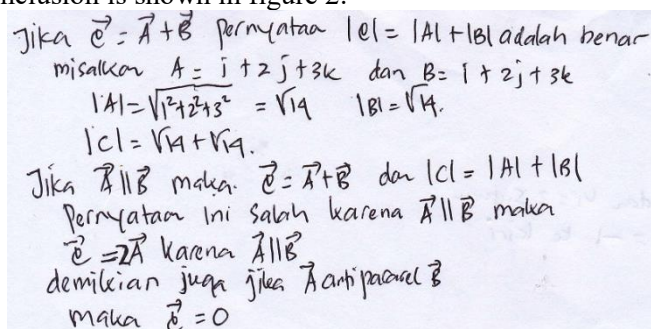 nclusion is shown in figure 2.
Jika C⃗ = A⃗ + B⃗ pernyataa |C| = |A| + |B| adalah benar
misalkan A = i + 2j + 3k dan B = i + 2j + 3k
|A| = √1²+2²+3² = √14 |B| = √14.
|C| = √14 + √14.
Jika A⃗ ∥ B⃗ maka. C⃗ = A⃗ + B⃗ dan |C| = |A| + |B|
Pernyataan ini salah karena A⃗ ∥ B⃗ maka
C⃗ = 2A⃗ karena A⃗ ∥ B⃗
demikian juga jika A⃗ anti paralel B⃗
maka C⃗ = 0